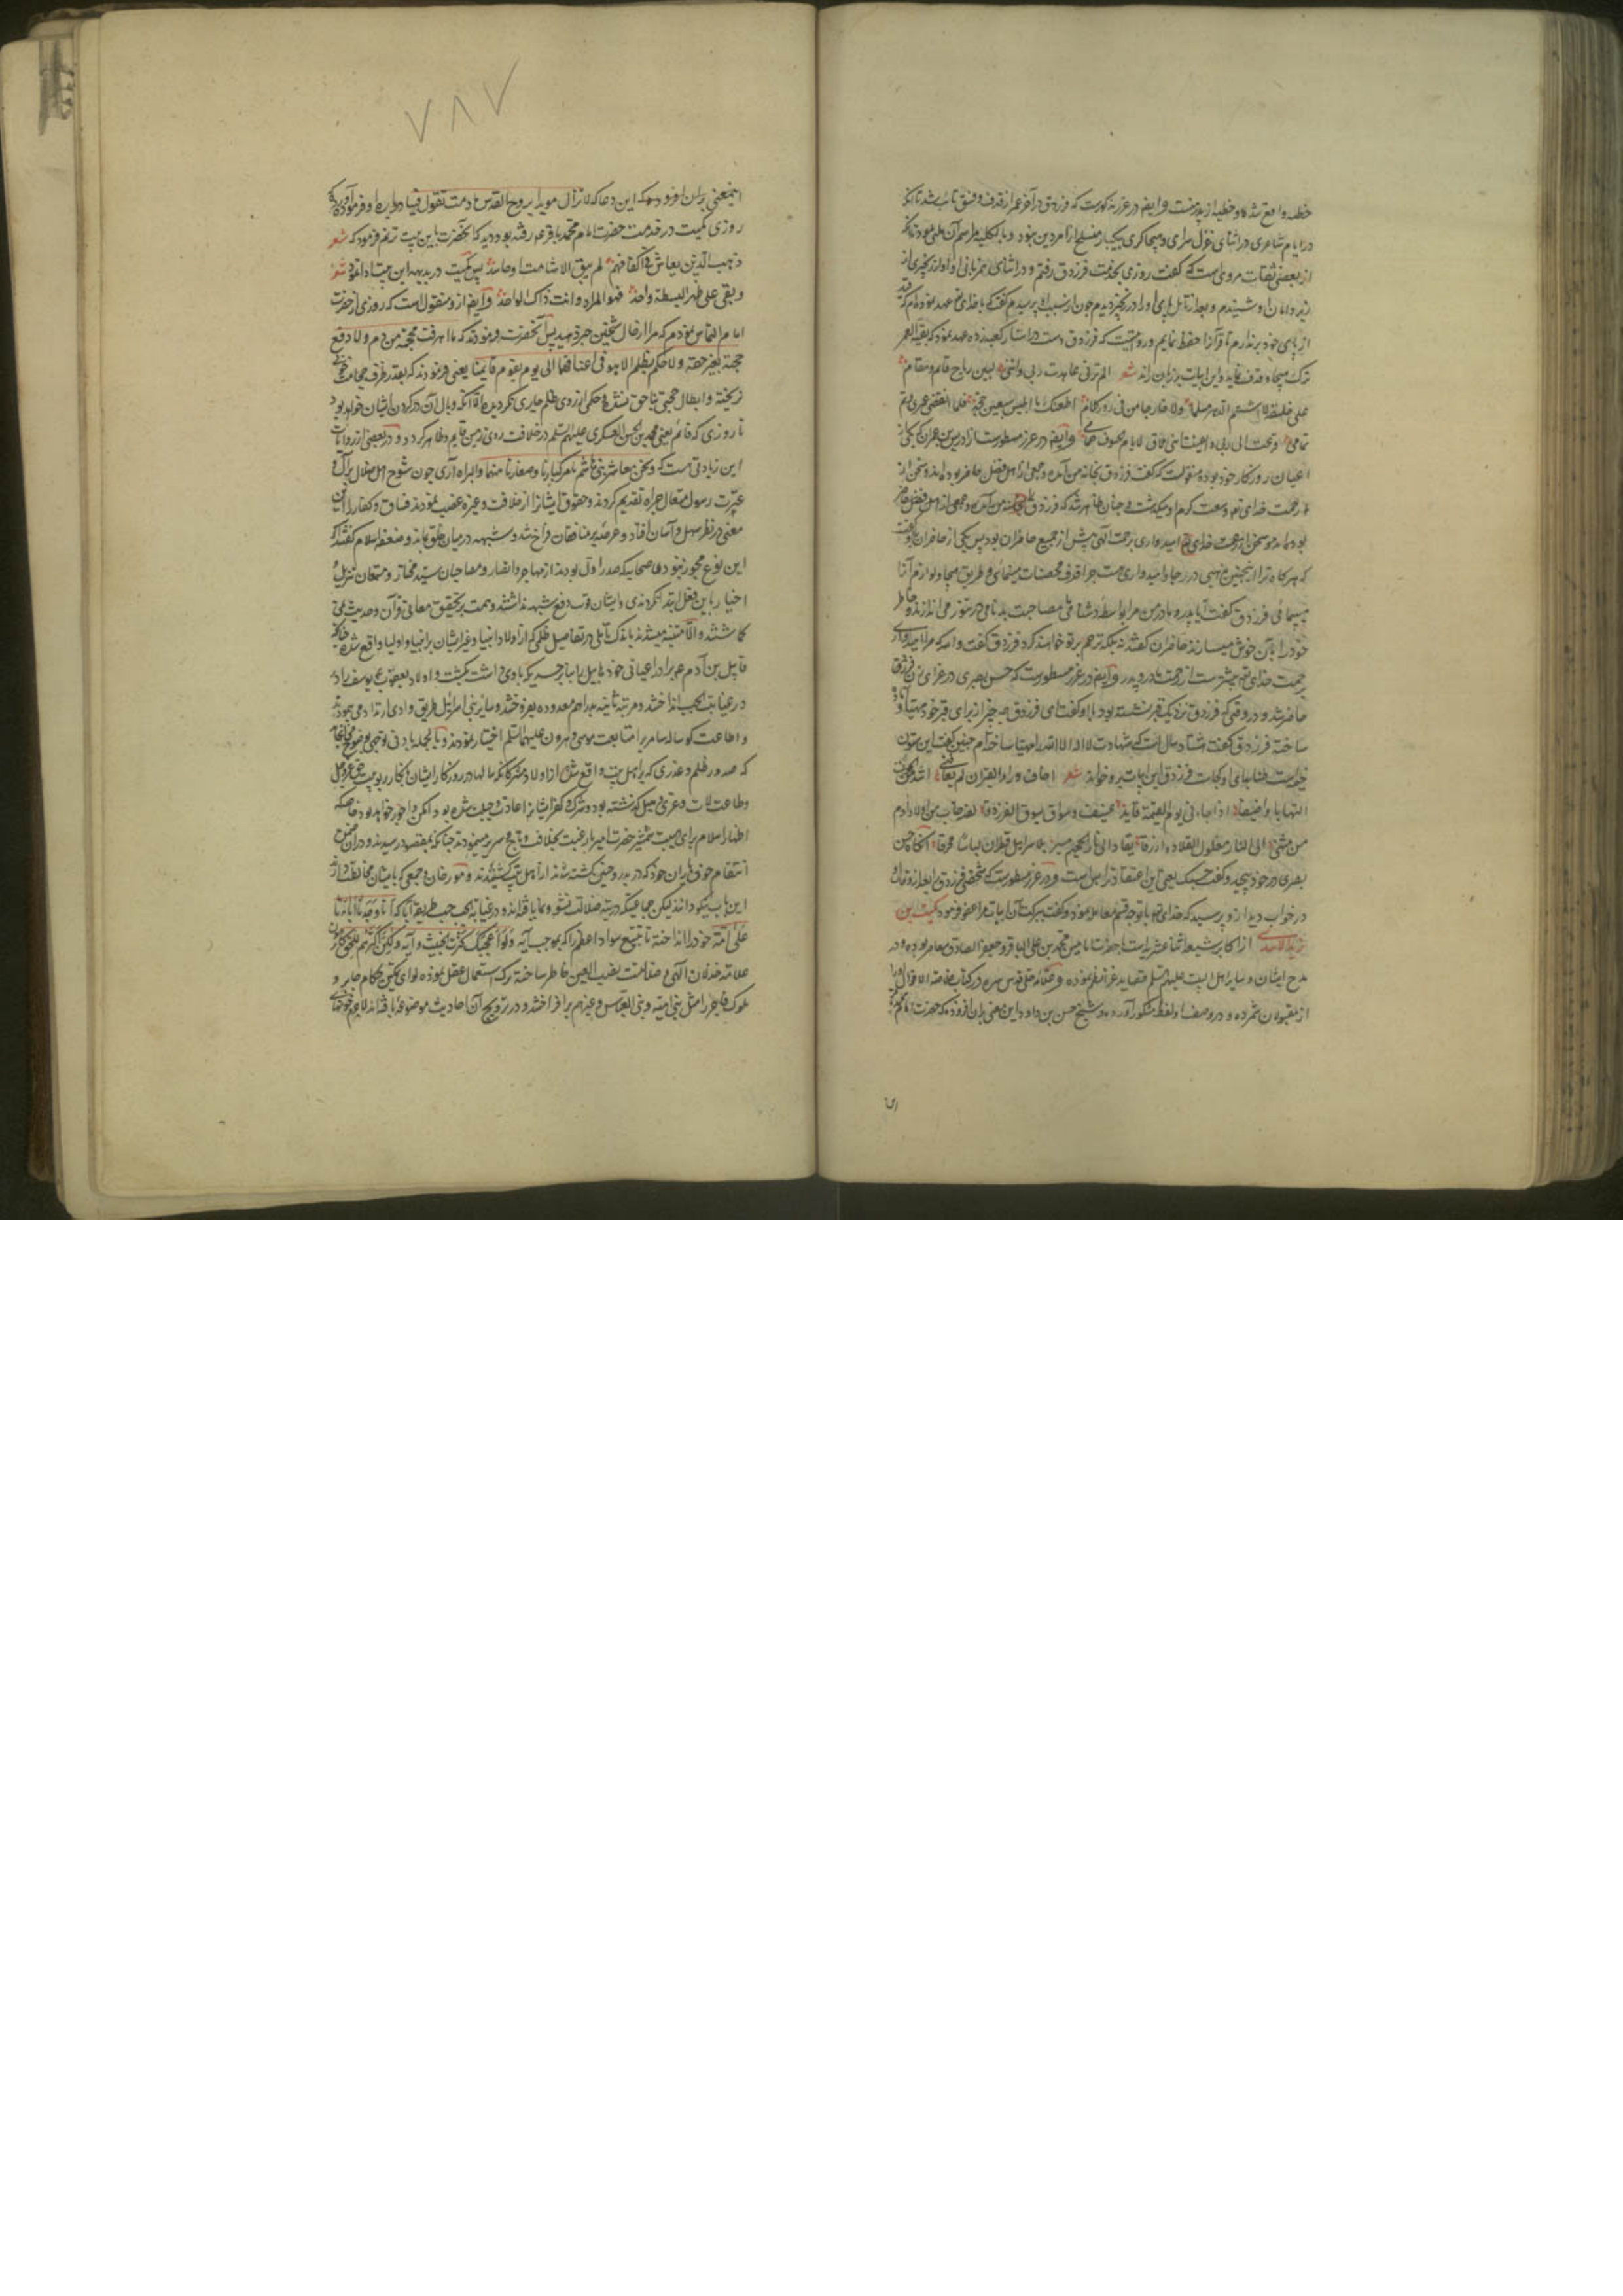 خطبه واقع شده و خطبه از پدر منست و ایضا در غرر مذکورست که فرزدق در آخر عمر از قذف و فسق تائب شد تا آنکه
در ایام شاعری در اثنای غزل سرای و هجاگری یکبار منسلخ از امر دین نبود و بالکلیه مراسم آن
از بعضی ثقات مرویست که گفت روزی بخدمت فرزدق رفتم و در اثنای همزبانی او آواز زنجیری از
زیر دامان او شنیدم و بعد از تامل پای او را در زنجیر دیدم چون از سبب آن پرسیدم گفت که با خدای تعالی عهد نموده‌ام که
از پای خود برندارم تا قرآنرا حفظ نمایم و روایتست که فرزدق دست در استار کعبه زده عهد نمود که بقیة العمر
ترک هجا و قذف نماید و این ابیات بر زبان راند شعر الم ترنی عاهدت ربی واننی لبین رتاج قائم ومقام
علی حلفة لا اشتم الدهر مسلما ولا خارجا من فی زور کلام اطعتک یا ابلیس سبعین حجة فلما انقضی عمری وتم
تمامی فزعت الی ربی وایقنت اننی ملاق لایام الحتوف حمامی وایضا در غرر مسطورست از ادریس بن عمران که یکی از
اعیان روزگار خود بوده منقولست که گفت فرزدق بخانه من آمد و جمعی از اهل فضل حاضر بودند و سخن از
رحمت خدای تعالی و سعت کرم او میگذشت و چنان ظاهر شد که فرزدق
بودند و سخن از رحمت خدای تعالی امیدواری برحمت الهی بیش از جمیع حاضران بود پس یکی از حاضران باو گفت
که هرگاه ترا اینچنین مذهبی در رجا و امیدواری هست چرا قذف محصنات مینمائی و طریق هجا و لوازم آنرا
میپیمائی فرزدق گفت آیا پدر و مادر من مرا بواسطه در تنور می‌اندازند و خاطر
خود را بآن خوش میسازند حاضران گفتند نه بلکه ترحم بر تو خواهند کرد فرزدق گفت والله که مرا امیدواری
برحمت خدای تعالی بیشترست از رحمت مادر و پدر وایضا در غرر مسطورست که حسن بصری در عزای زن فرزدق
حاضر شد و در وقتی که فرزدق نزدیک قبر نشسته بود با او گفت ای فرزدق چه چیز از برای قبر خود مهیا
ساختی فرزدق گفت هشتاد سال است که شهادت لا اله الا الله را مهیا ساخته‌ام حسن گفت این ستون
خیمه است طنابهای او کجاست فرزدق این ابیات برو خواند شعر اخاف وراء القبر ان لم یعافنی اشد من القبر
التهابا واضیقا اذا جاءنی یوم القیمة قاید عنیف وسواق یسوق الفرزدقا لقد خاب من اولاد آدم
من مشی الی النار مغلول القلادة ازرقا یقاد الی نار الجحیم مسربلا سرابیل قطران لباسا محرقا آنگاه حسن
بصری در خود پیچید و گفت حسبک یعنی این اعتقاد ترا بس است و در غرر مسطورست که شخصی فرزدق را بعد از وفات او
در خواب دید ازو پرسید که خدای تعالی با تو چه قسم معامله نمود گفت ببرکت آن ابیات مرا عفو فرمود کمیت بن
زید الاسدی از اکابر شیعه اثنا عشریه است با حضرت امامین محمد بن علی الباقر و جعفر الصادق معاصر بوده و در
مدح ایشان و سایر اهل البیت علیهم السلام قصاید غرا نظم نموده و علامه حلی قدس سره در کتاب خلاصة الاقوال او را
از مقبولان شمرده و در وصف او لفظ مشکور آورده و شیخ حسن بن داود این معنی بران افزوده که حضرت امام محمد
۷۸۷
اینمعنی بران افزوده که این دعا که لا تزال مؤیدا بروح القدس ما دمت تقول فینا درباره او فرموده
روزی کمیت در خدمت حضرت امام محمد باقر ع رفته بود دید که آنحضرت باین بیت ترنم فرمود که شعر
ذهب الذین یعاش فی اکنافهم لم یبق الا شامت او حاسد پس کمیت در بدیهه این بیت ادا نمود شعر
وبقی علی ظهر البسیطة واحد فهو المراد وانت ذاک الواحد وایضا ازو منقول است که روزی از حضرت
امام التماس نمودم که مرا از حال شیخین خبر دهید پس آنحضرت فرمودند که ما اهرقت محجمة من دم ولا دفع
حجة بغیر حقه ولا حکم بظلم الا هو فی اعناقهما الی یوم یقوم قایمنا یعنی فرمودند که بقدر ظرف حجامت خونی
نریخته و ابطال حجتی بناحق نشده و حکم از روی ظلم جاری نگردیده الا آنکه وبال آن در گردن ایشان خواهد بود
تا روزی که قائم یعنی محمد بن الحسن العسکری علیهم السلم در خلافت روی زمین قایم و ظاهر گردد و در بعضی از روایات
این زیادتی هست که ونحن معاشر بنی هاشم نامر کبارنا وصغارنا منهما والبراءة آری چون شیوخ اهل ضلال بر آل و
عترت رسول متعال جراه تقدیم کردند و حقوق ایشانرا از خلافت و غیره غصب نمودند فساق و کفار را این
معنی در نظر سهل و آسان افتاد و عرصه بر منافقان فراخ شد و شبهه در میان خلق بماند و ضعفه اسلام گفتند اگر
این نوع مجوز نبودی صحابه که صدر اول بودند از مهاجر و انصار و مصاحبان سید مختار و مستمعان تنزیل و
اخبار باین فعل ابتدا نکردندی و ایشان قوت دفع شبهه نداشتند و همت بر تحقیق معانی قرآن و حدیث نمی
گماشتند والا متنبه میشدند باندک تاملی در تفاصیل ظلمی که از اولاد انبیا و غیر ایشان بر انبیا و اولیا واقع شده چنانکه
قابیل بن آدم ع برادر اعیانی خود هابیل را بنابر حسدی که باوی داشت بکشت و اولاد یعقوب ع یوسف را
در غیابت الجب انداختند و مرتبه ثانیه بدراهم معدوده بفروختند و سایر بنی اسرائیل طریق وادی ارتداد می‌پیمودند
و اطاعت گوساله سامری را بر متابعت موسی و هرون علیهما السلم اختیار نمودند و بالجمله بادنی توجهی بوضوح می‌انجامد
که صدور ظلم و غدری که بر اهل بیت واقع شد از اولاد مشرکان که سالها در روزگار ایشان بانکار ربوبیت حق عز و جل
و طاعت لات و عزی و هبل گذشته بود و شرک و کفر ایشانرا عادت و جبلت شده بود ممکن و اجوز خواهد بود خاصه که
اظهار اسلام برای هیبت شمشیر حضرت امیر یا رغبت بخلافت و تاج و سریر مینمودند چنانکه بمقصد رسیدند و در آن ضمن
انتقام خون یاران خود که در بدر و حنین کشته شدند از اهل بیت کشیدند و مورخان و جمعی که بایشان مخالفت
این باب نیکو دانند لیکن جماعتی که در تیه ضلالت نشو و نما یافته‌اند و در غیابه الجب طریقه آبا که انا وجدنا آباءنا
علی امة خود را انداخته تا تتبع سواد اعظم را که بموجب آیه ولو اعجبک کثرة الخبیث و آیه ولکن اکثرهم للحق کارهون
علامت خذلان الهی و ضلالت نصب العین خاطر ساخته ترک استعمال عقل نموده لوای تمکین حکام جابر و
ملوک فاجر را مثل بنی امیه و بنی العباس و غیرهم برافراختند و در ترویج آن احادیث موضوعه بافته‌اند لاجرم